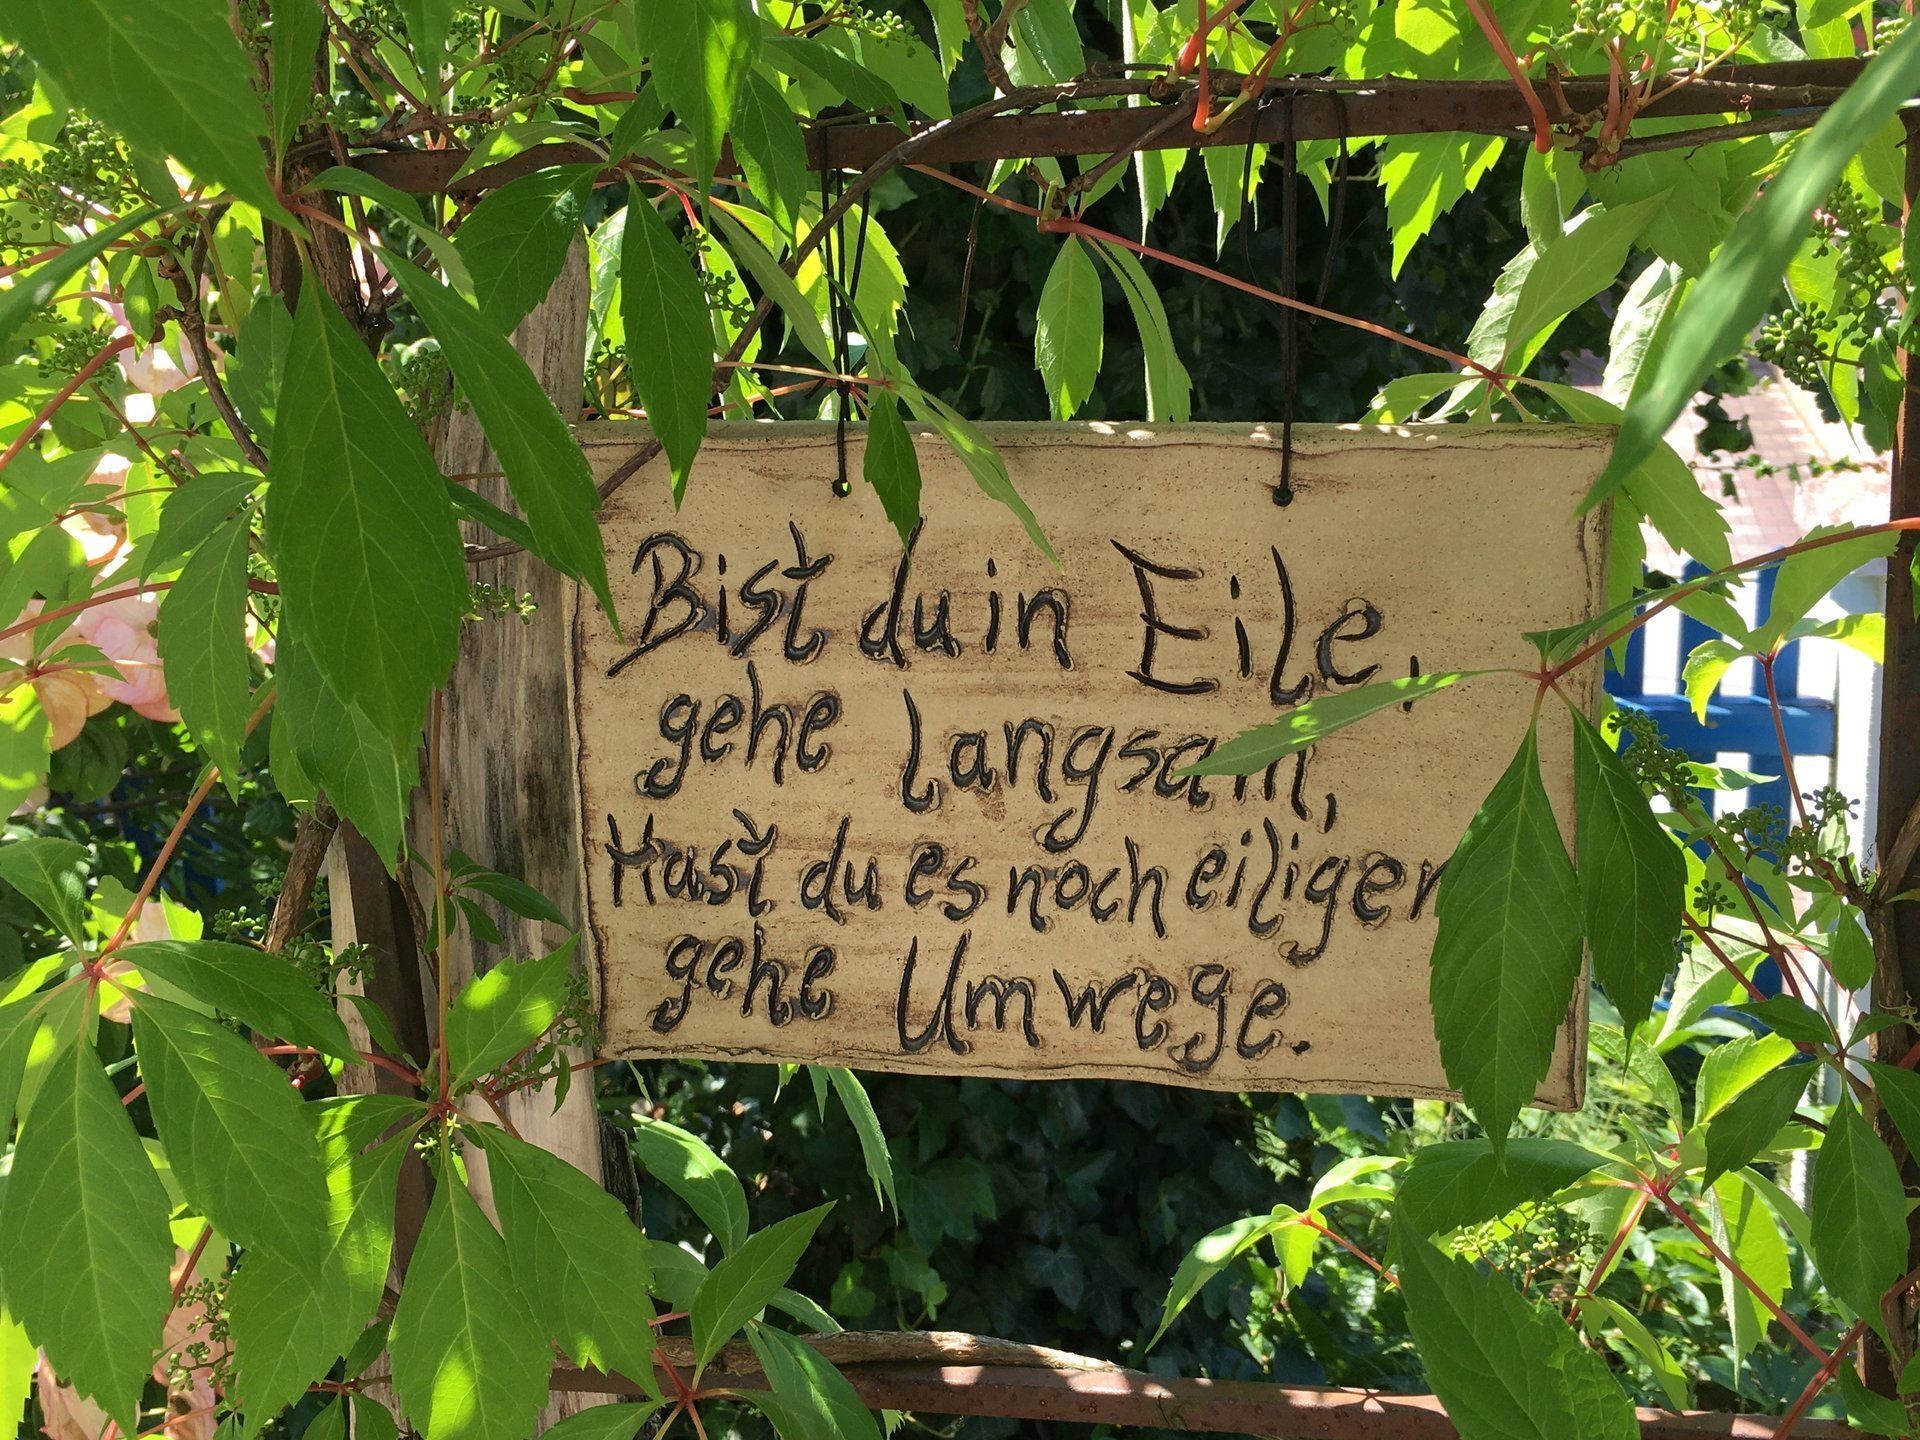 Bist du in Eile,
gehe langsam,
Hast du es noch eiliger
gehe Umwege.